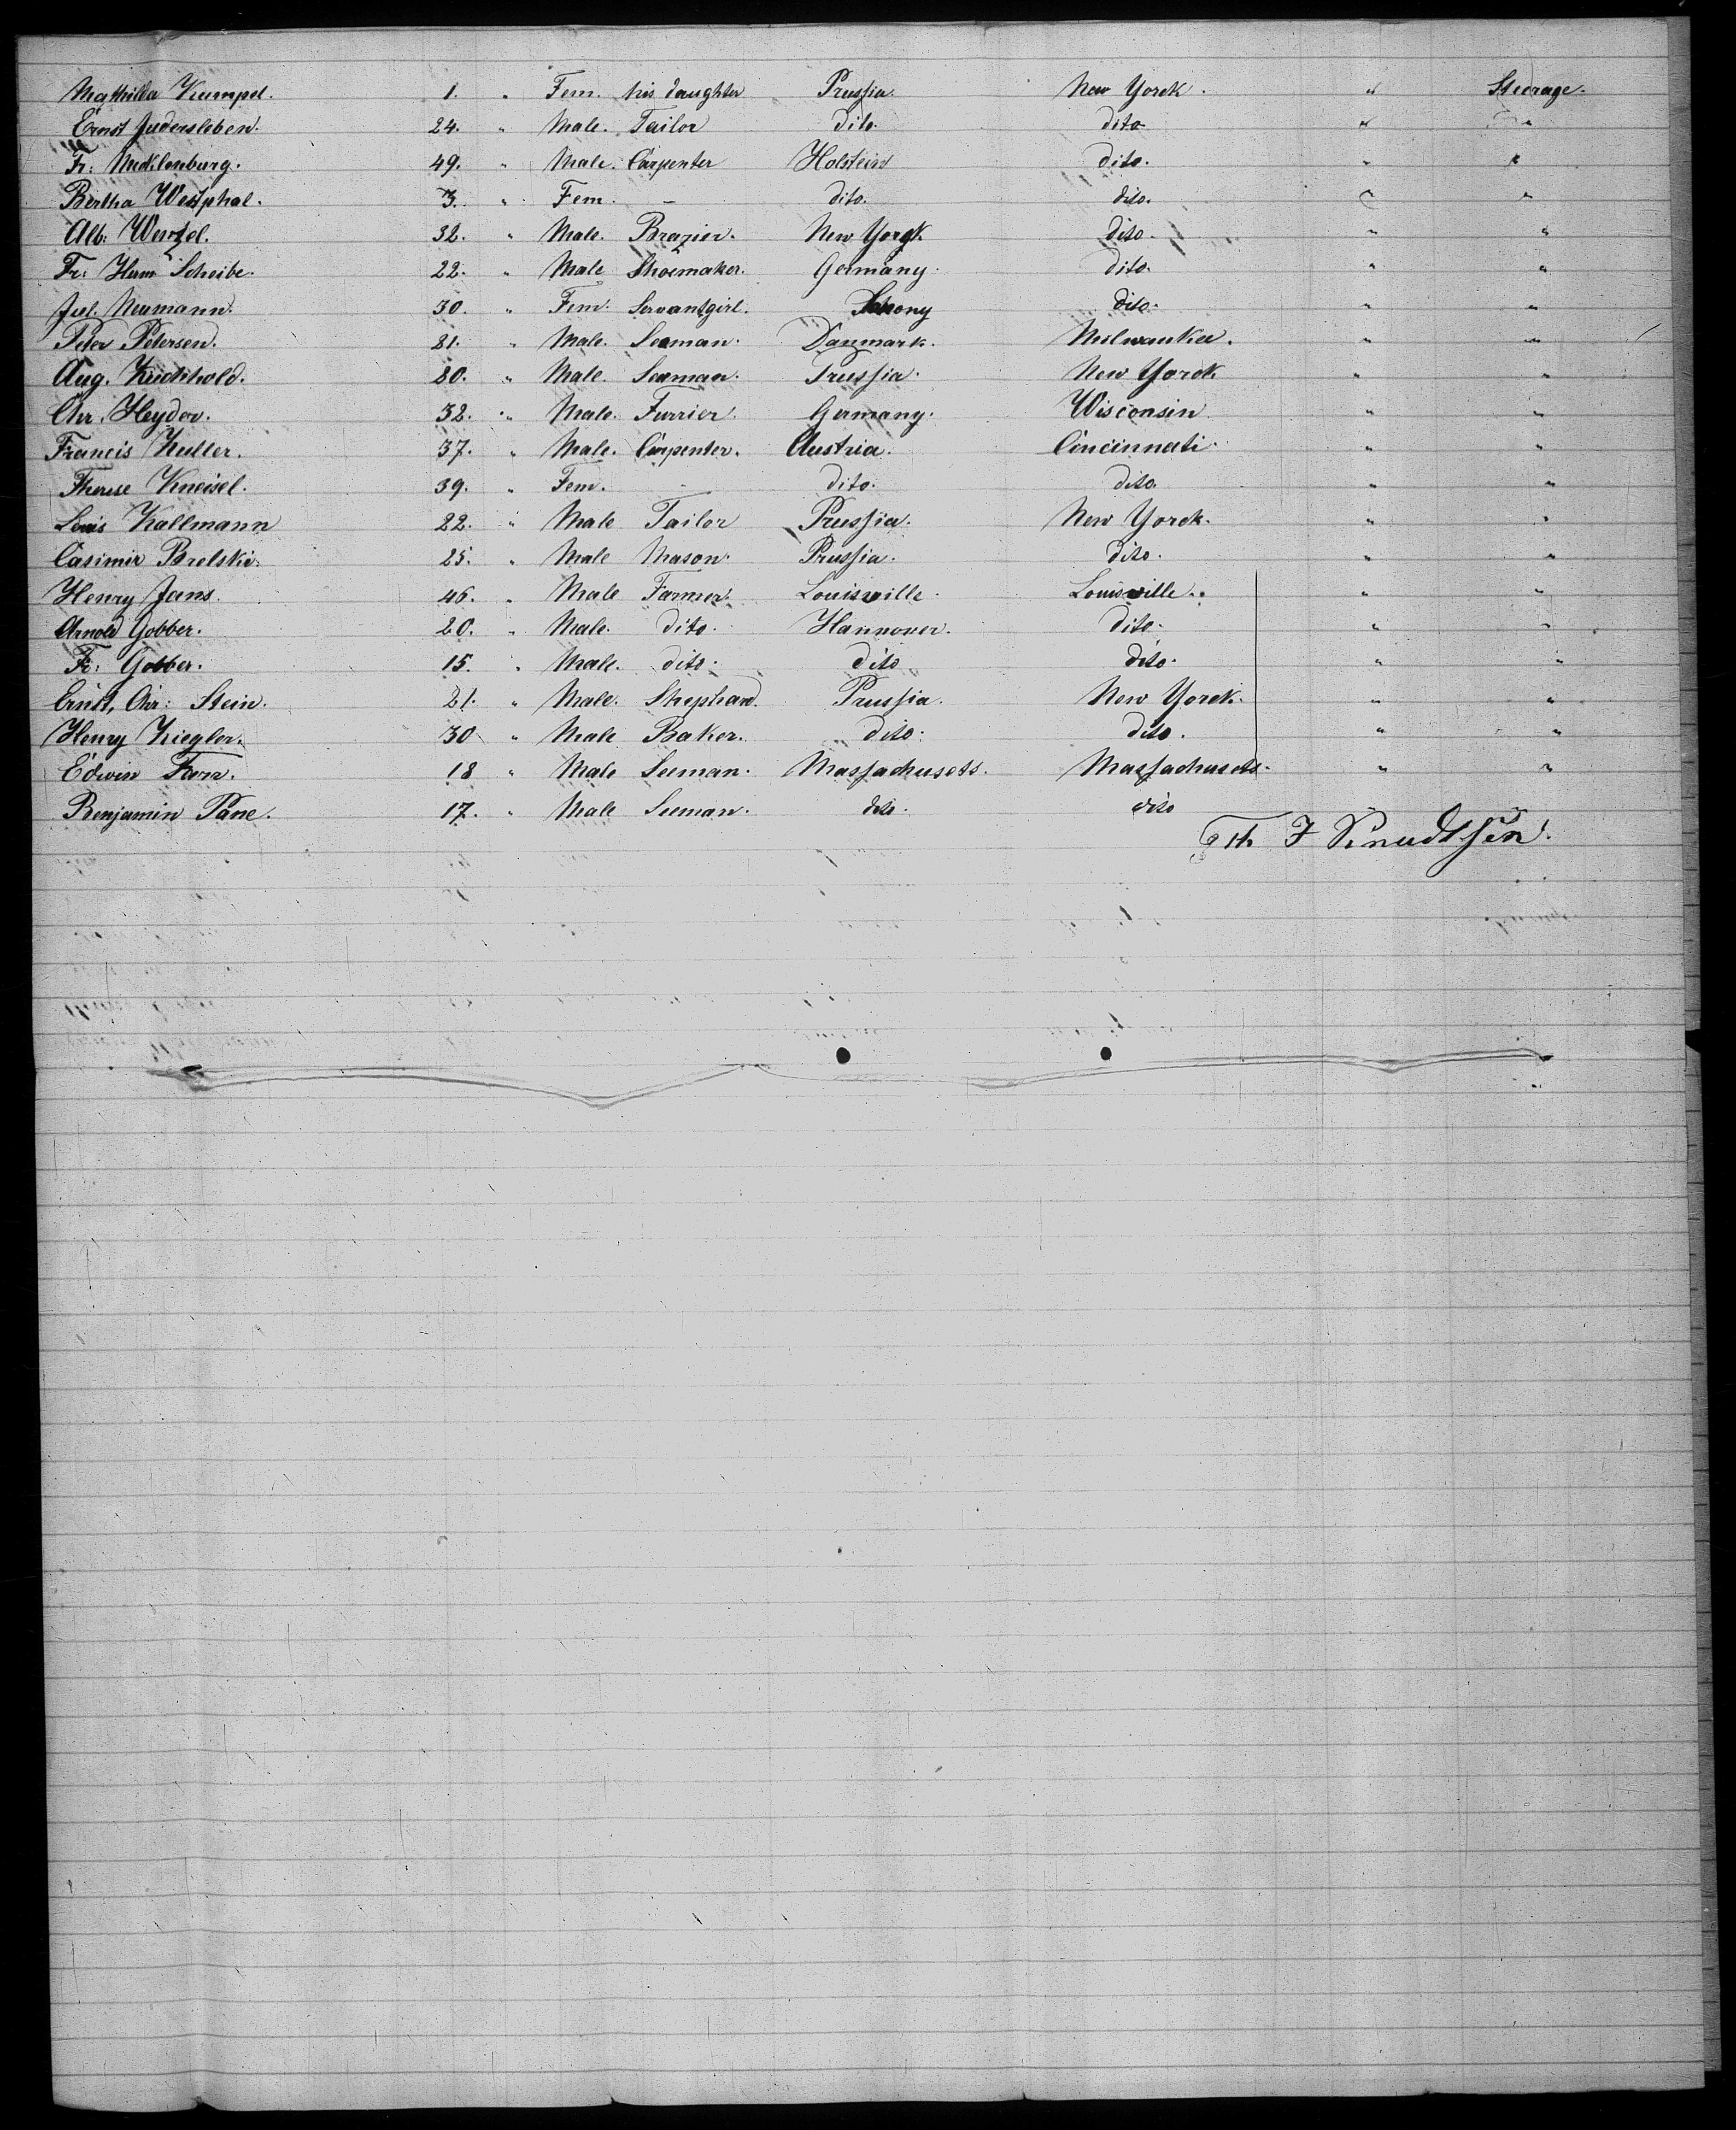 Mathilda Kumpel. 1. " Fem. his daughter Prussia. New Yorck. " Steerage.
Ernst Judersleben. 24. " Male. Tailor dito. dito " "
Fr: Mecklenburg. 49. " Male. Carpenter Holstein dito. " "
Bertha Westphal. 3. " Fem. – dito. dito. " "
Alb: Wenzel. 32. " Male. Brazier. New Yorck. dito. " "
Fr: Herm Scheibe. 22. " Male Shoemaker. Germany. dito. " "
Jul. Neumann. 30. " Fem. Servantgirl. dito. " "
Peter Petersen. 21. " Male. Seaman. Danmark. Milwaukee. " "
Aug. 20. " Male. Seaman. Prussia. New Yorck " "
Chr. Heyder. 32. " Male. Furrier. Germany. Wisconsin " "
Francis Kuller. 37. " Male. Carpenter. Austria. Cincinnati. " "
Therese Kneisel. 39. " Fem. - dito. dito. " "
Louis Kallmann 22. " Male Tailor Prussia. New Yorck. " "
Casimir Brelski. 25. " Male Mason. Prussia. dito. " "
Henry Jans. 46. " Male Farmer. Louisville. Louisville. " "
Arnold Gobber. 20. " Male. dito. Hannover. dito. " "
Fr: Gobber. 15. " Male. dito. dito dito. " "
Ernst, Chr: Stein. 21. " Male. Shephard. Prussia. New Yorck. " "
Henry Ziegler. 30 " Male Baker. dito. dito. " "
Edwin Farr. 18 " Male Seeman. Massachusets. Massachusets. " "
Benjamin Pane. 17. " Male Seeman. dito. dito
J Knudtsen.